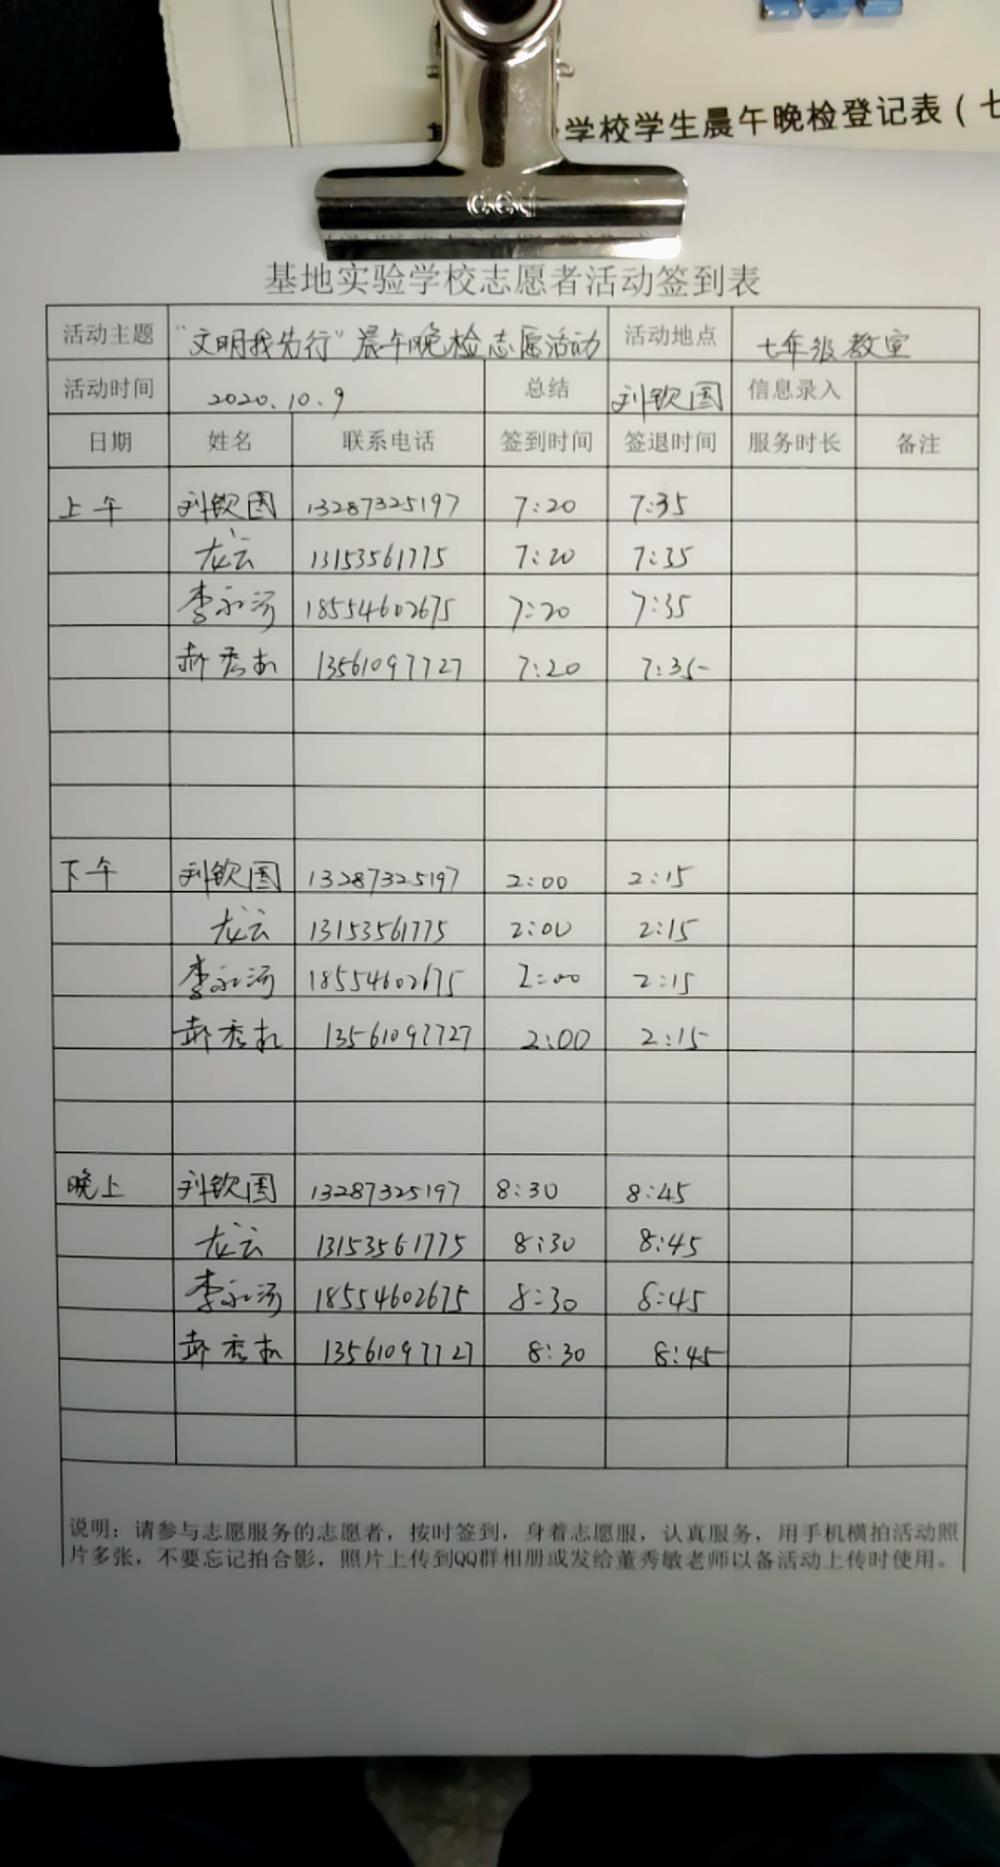 学校学生晨午晚检登记表（七
ded
基地实验学校志愿者活动签到表
活动主题 "文明我先行"晨午晚检志愿活动 活动地点 七年级教室
活动时间 2020.10.9 总结 刘钦国 信息录入
日期 姓名 联系电话 签到时间 签退时间 服务时长 备注
上午 刘钦国 13287325197 7:20 7:35
龙云 13153561775 7:20 7:35
李永河 18554602675 7:20 7:35
13561097727 7:20 7:35
下午 刘钦国 13287325197 2:00 2:15
龙云 13153561775 2:00 2:15
李永河 18554602675 2:00 2:15
13561097727 2:00 2:15
晚上 刘钦国 13287325197 8:30 8:45
龙云 13153561775 8:30 8:45
李永河 18554602675 8:30 8:45
13561097727 8:30 8:45
说明：请参与志愿服务的志愿者，按时签到，身着志愿服，认真服务，用手机横拍活动照
片多张，不要忘记拍合影，照片上传到QQ群相册或发给董秀敏老师以备活动上传时使用。